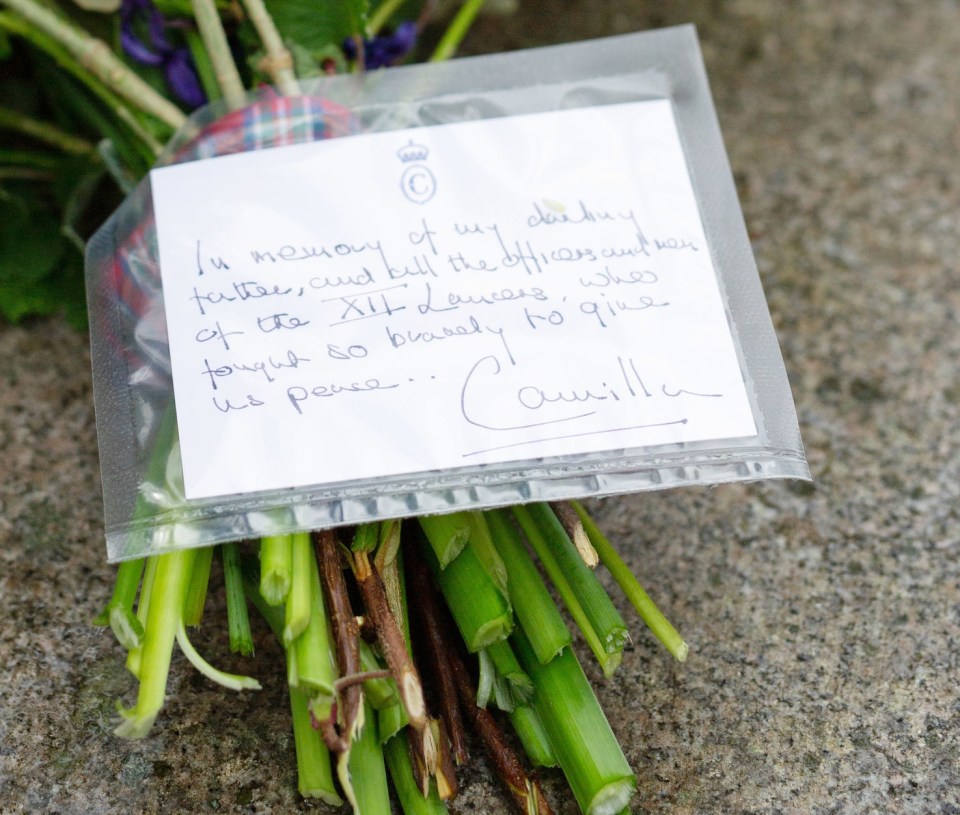 C
In memory of my darling
father, and all the officers and men
of the XII Lancers, who
fought so bravely to give
us peace...
Camilla